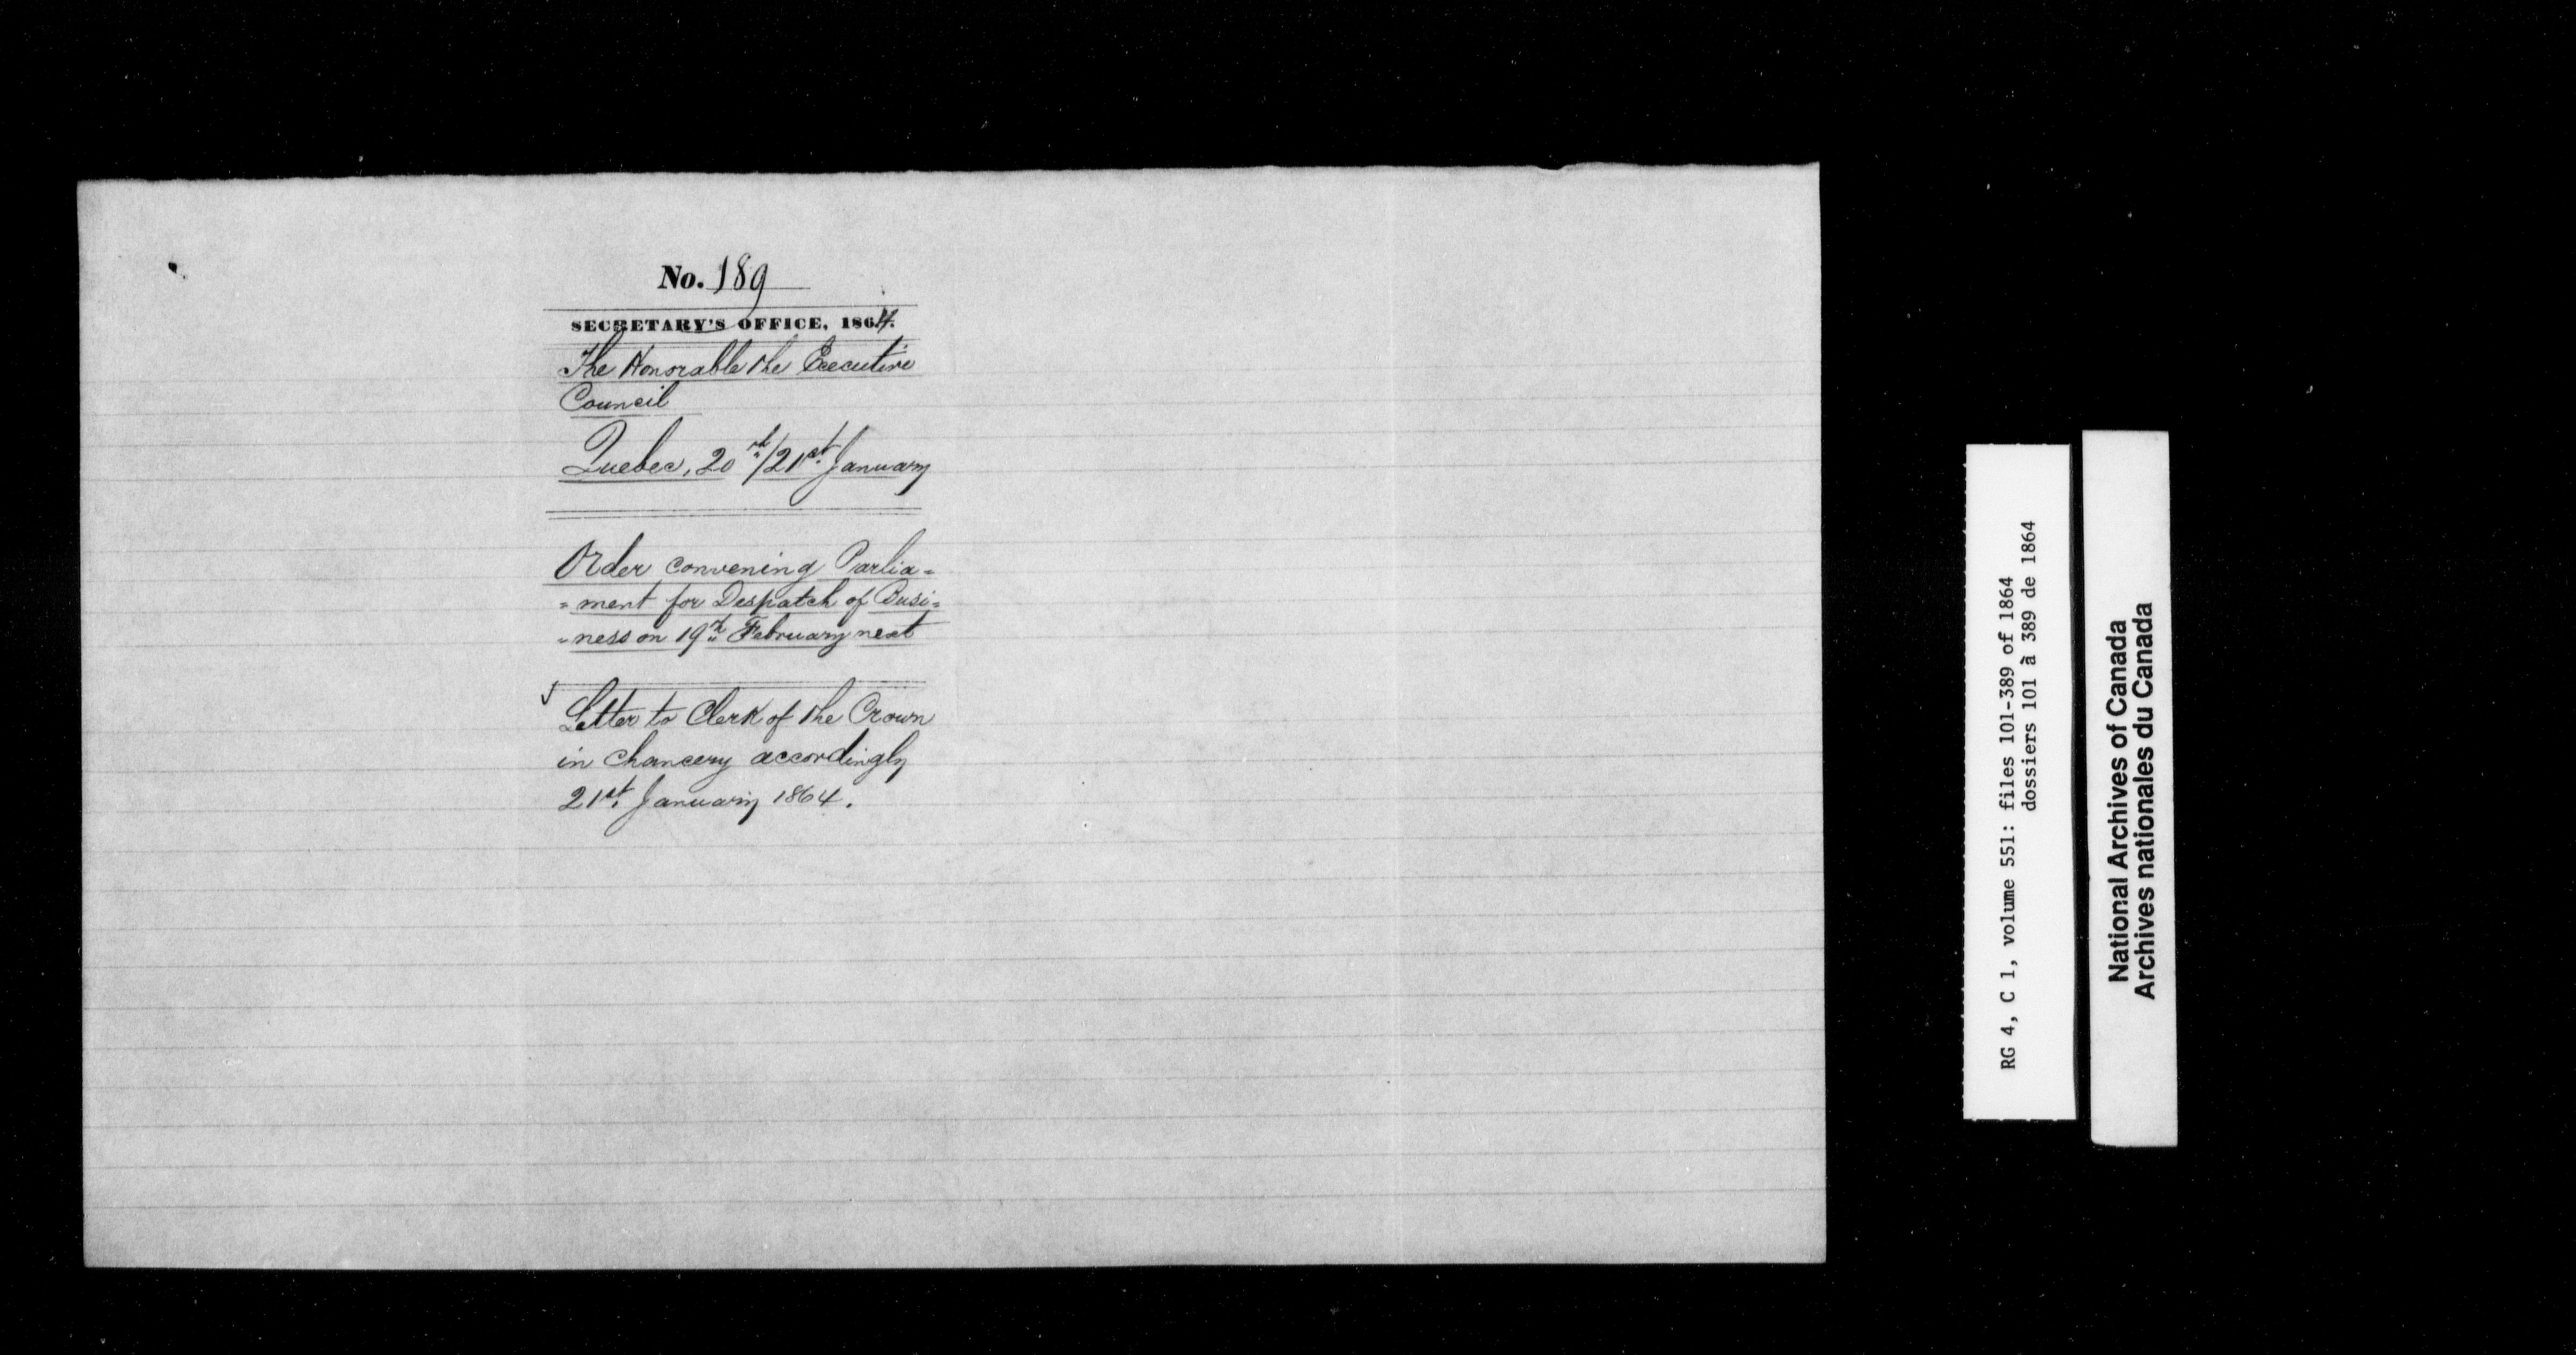 No. 189
SECRETARY'S OFFICE, 1864.
The Honorable the Executive
Council
Quebec, 20th/21st January
Order convening Parlia=
=ment for Despatch of Busi=
=ness on 19th February next
Letter to Clerk of the Crown
in Chancery accordingly
21st January 1864.
RG 4, C 1, volume 551: files 101-389 of 1864
dossiers 101 à 389 de 1864
National Archives of Canada
Archives nationales du Canada